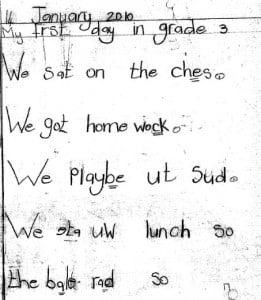 11 January 2010
My frst day in grade 3
We sat on the ches.
We got home wock.
We Playbe ut Sud.
We sta uw lunch so
the bale rad so